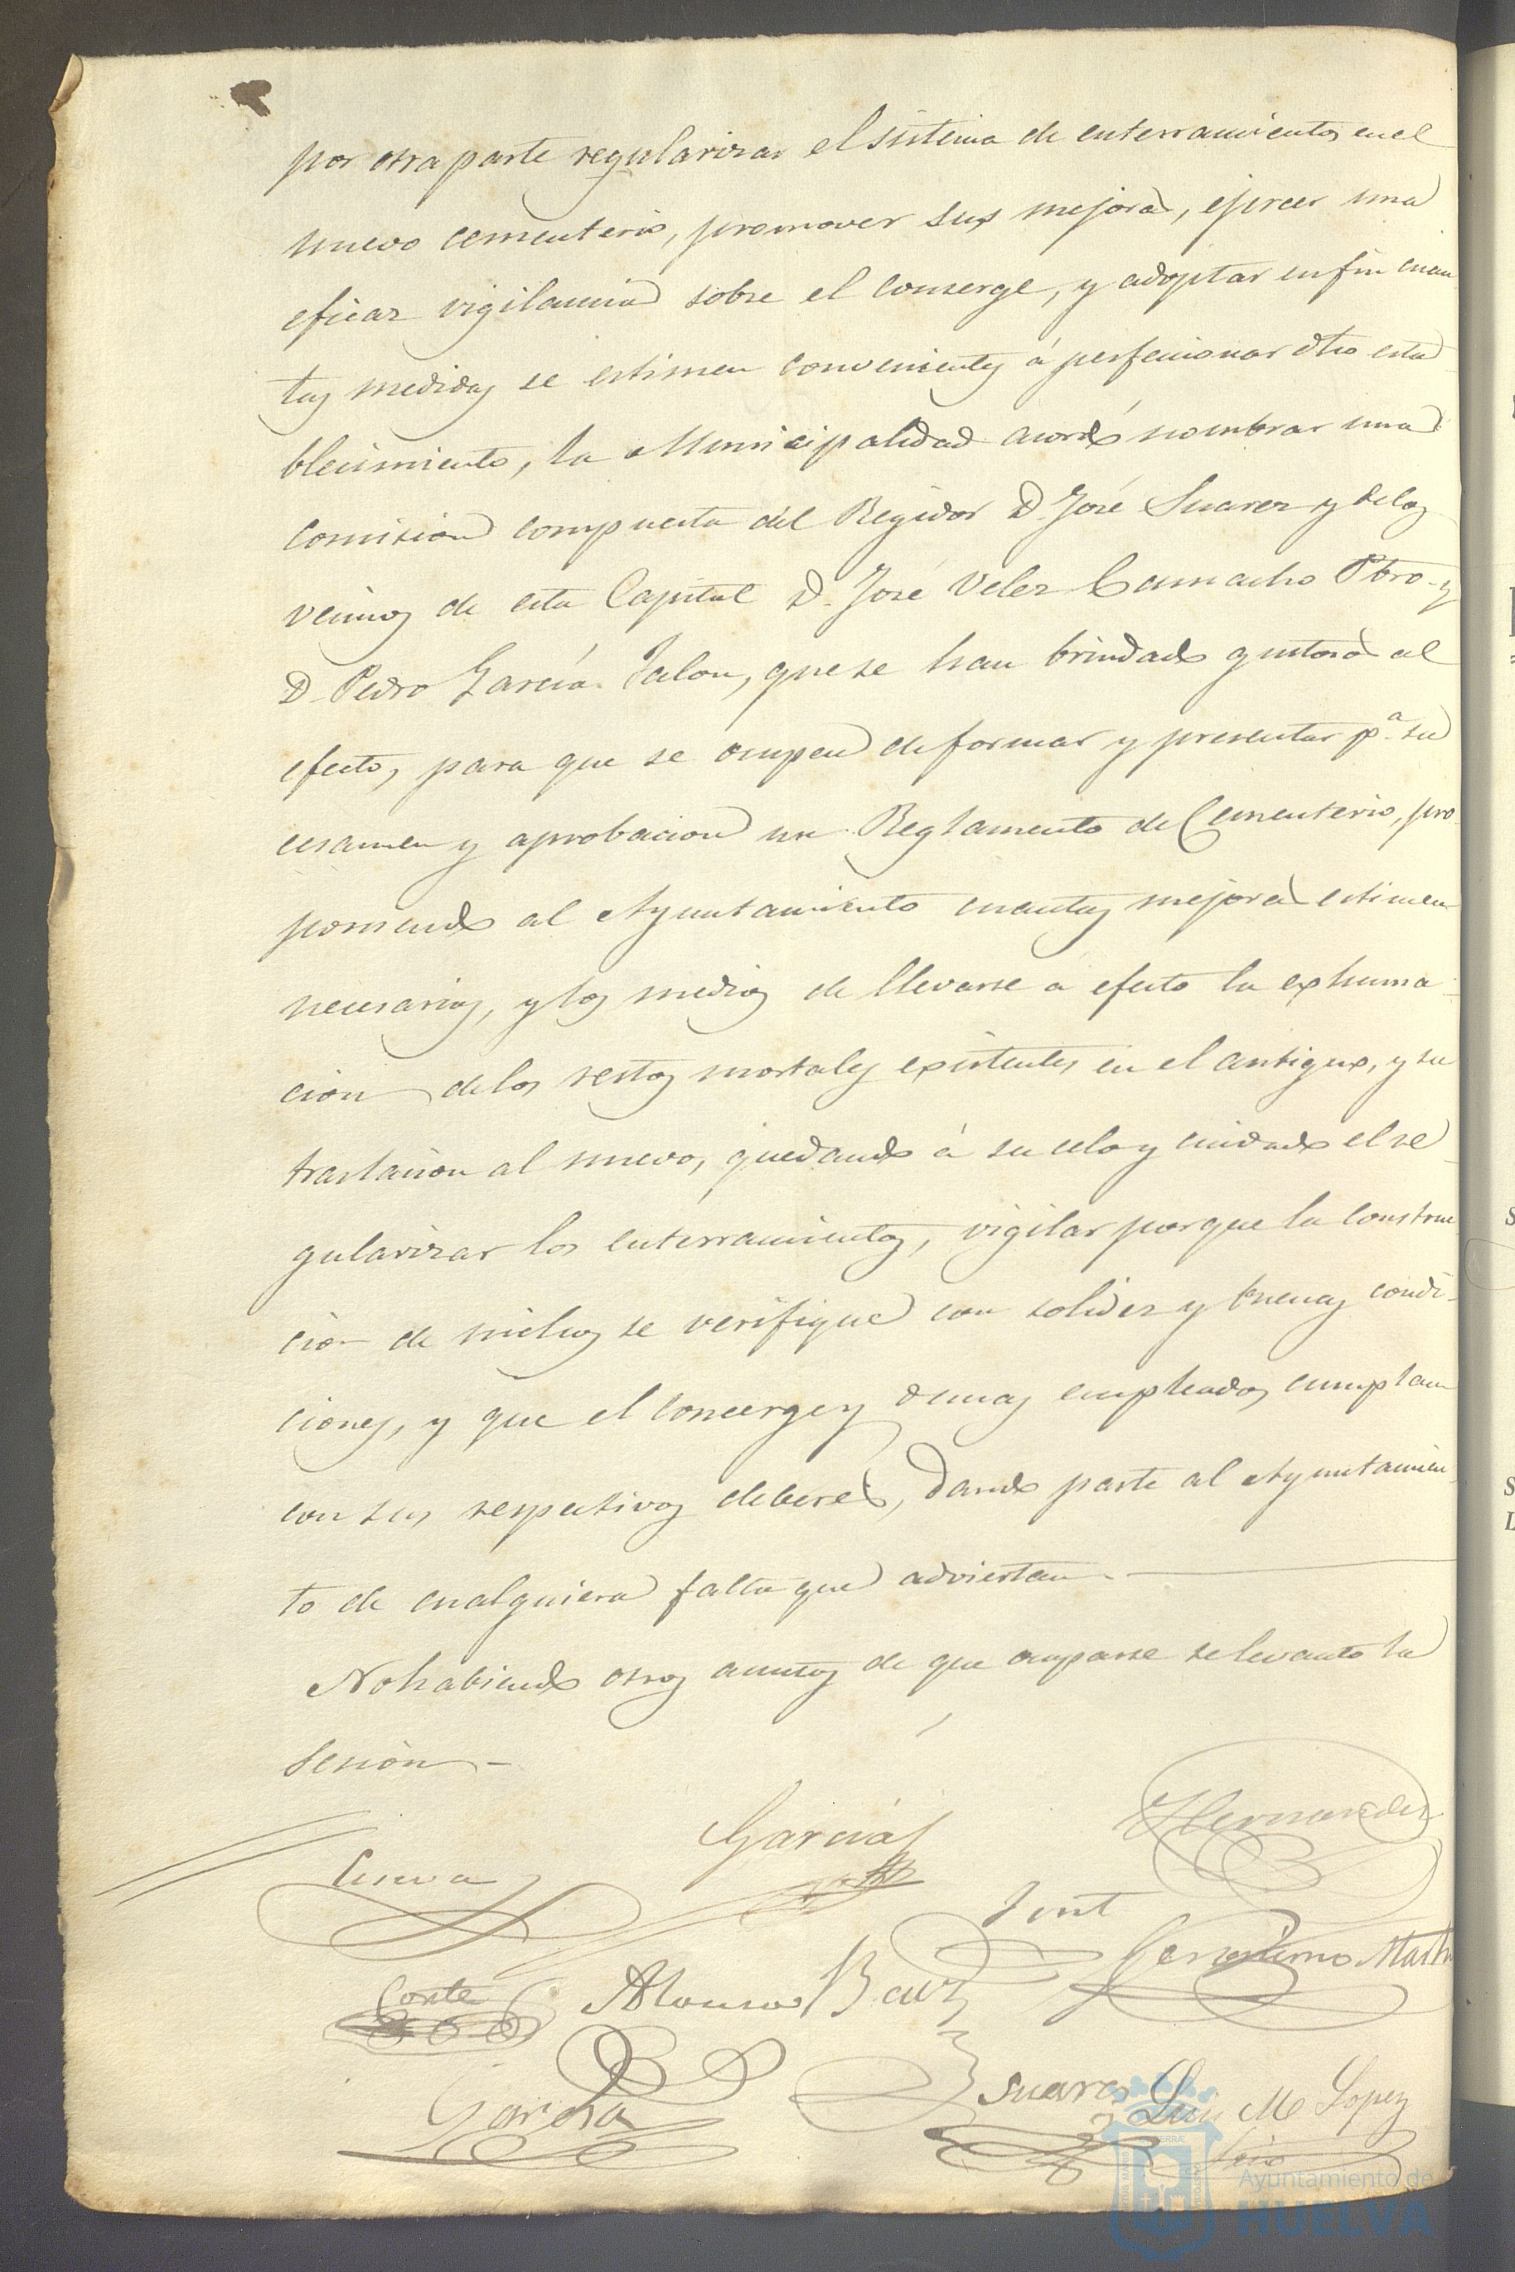 por otra parte regularizar el sistema de enterramientos en el
nuevo cementerio, promover sus mejoras, ejercer una
eficaz vigilancia sobre el conserge, y adoptar en fin cuan
tas medidas se estimen convenientes á perfeccionar dho esta
blecimiento, la Municipalidad acordó nombrar una
comision compuesta del Regidor D. José Suarez y de los
vecinos de esta Capital D. José Velez Camacho Pbro. y
D. Pedro García Jalon, que se han brindado gustosos al
efecto, para que se ocupen de formar y presentar pª. su
ecsamen y aprobacion un Reglamento de Cementerio, pro-
poniendo al Ayuntamiento cuantas mejoras estimen
necesarias, y los medios de llevarse á efecto la exhuma-
cion de los restos mortales existentes en el antiguo, y su
traslacion al nuevo, quedando á su celo y cuidado el re-
gularizar los enterramientos, vigilar porque la construc
cion de nichos se verifique con solidez y buenas condi-
ciones, y que el concerge y demas empleados cumplan
con sus respectivos deberes, dando parte al Ayuntamien
to de cualquiera falta que adviertan.
No habiendo otros asuntos de que ocuparse se levantó la
sesión.-
García Hernandez
Cueva
Jeronimo Martin
Corte Alonso Baez
Suarez Luis M Lopez
Garcia
Srio
Ayuntamiento de
HUELVA